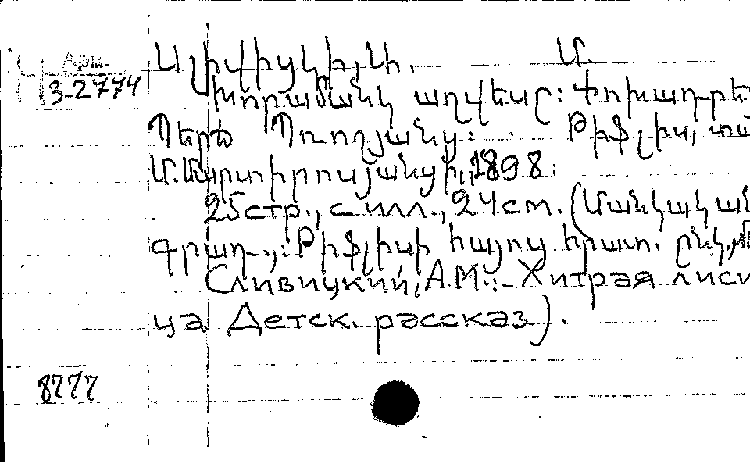 Арм.
3-2774
Սլիվիցկի, Ա. Մ.
Խորամանկ աղվեսը: Փոխադրե
Պերճ Պռոշյանց: Թիֆլիս, տպ
Մ. Մարտիրոսյանցի, 1898.
25стр., с илл., 24см. (Մանկական
գրադ., Թիֆլիսի հայոց հրատ. ընկ.,
Сливицкий, А.М. Хитрая лиси
ца Детск. рассказ).
8777